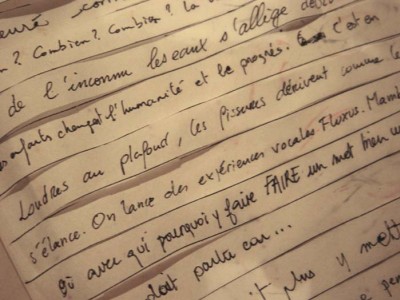 eusé
? Combien? Combien? la
de l'inconnu les eaux s'allège
enfants changent l'humanité et le progrès. c'est en
Loudres au plafond, les fissures dérivent comme le
s'élance. On lance des expériences vocales Fluxus.
où avec qui pourquoi y faire FAIRE un mot bien
doit partir car...
plus y mett